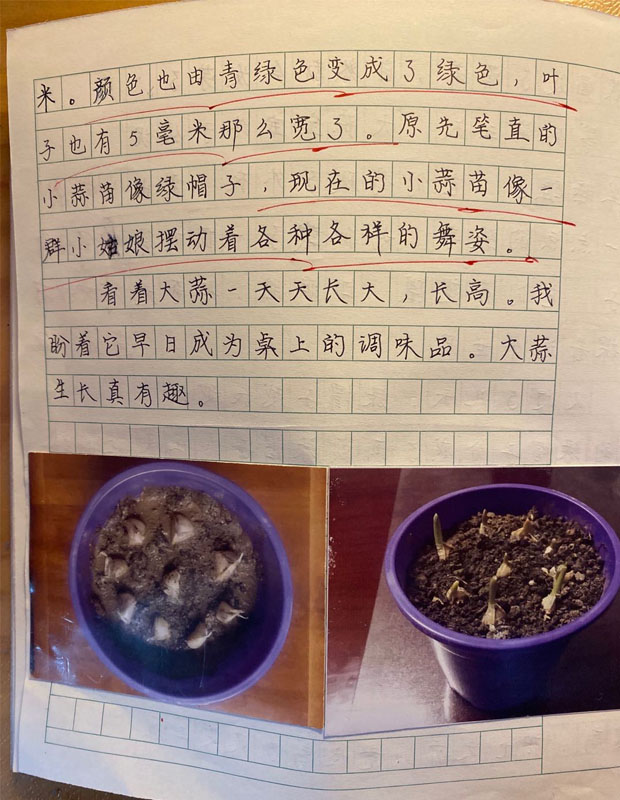 米。颜色也由青绿色变成了绿色，叶
子也有5毫米那么宽了。原先笔直的
小蒜苗像绿帽子，现在的小蒜苗像一
群小姑娘摆动着各种各样的舞姿。
看着大蒜一天天长大，长高。我
盼着它早日成为桌上的调味品。大蒜
生长真有趣。